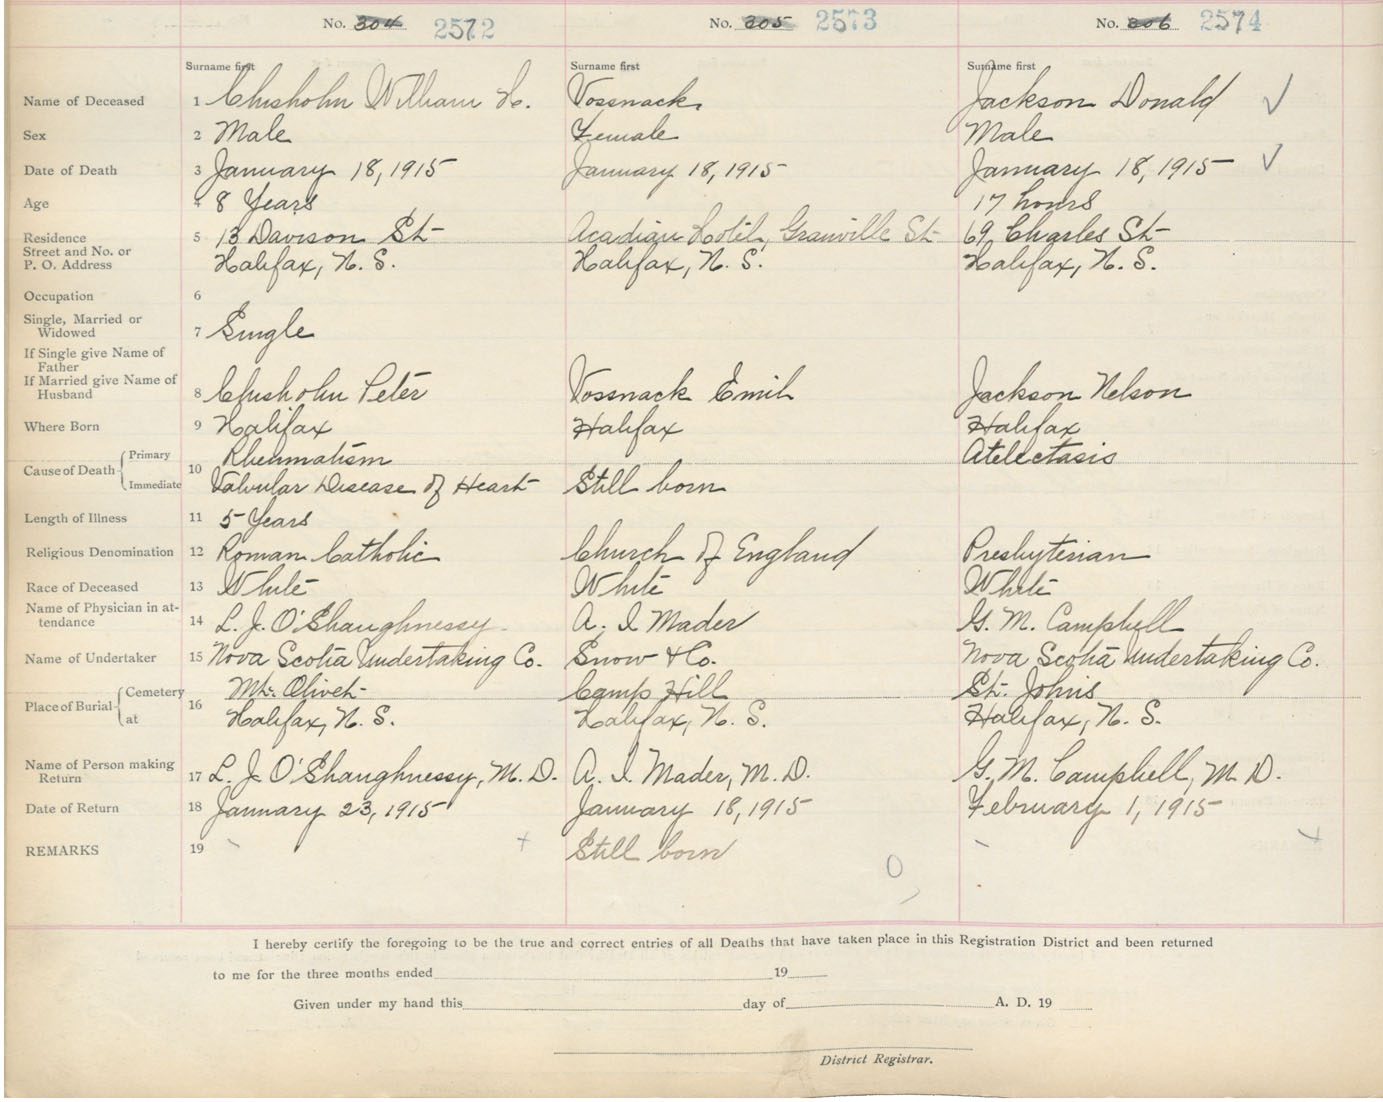 No. 304 2572 No. 305 2573 No. 306 2574
Surname first Surname first Surname first
Name of Deceased 1 Chisholm William H. Vossnack. Jackson Donald
Sex 2 Male Female Male
Date of Death 3 January 18, 1915 January 18, 1915 January 18, 1915
Age 4 8 Years 17 hours
Residence 5 13 Davison St Acadian Hotel, Granville St 69 Charles St
Street and No. or
P. O. Address Halifax, N. S. Halifax, N. S. Halifax, N. S.
Occupation 6
Single, Married or
Widowed 7 Single
If Single give Name of
Father
If Married give Name of
Husband 8 Chisholm Peter Vossnack Emil Jackson Nelson
Where Born 9 Halifax Halifax Halifax
Primary Rheumatism Atelectasis
Cause of Death 10
Immediate Valvular Disease of Heart Still born
Length of Illness 11 5 Years
Religious Denomination 12 Roman Catholic Church of England Presbyterian
Race of Deceased 13 White White White
Name of Physician in at-
tendance 14 L. J. O'Shaughnessy. A. I Mader G. M. Campbell
Name of Undertaker 15 Nova Scotia Undertaking Co. Snow & Co. Nova Scotia Undertaking Co.
Cemetery Mt. Olivet Camp Hill St. Johns
Place of Burial 16
at Halifax, N. S. Halifax, N. S. Halifax, N. S.
Name of Person making
Return 17 L. J. O'Shaughnessy, M. D. A. I. Mader, M. D. G. M. Campbell, M. D.
Date of Return 18 January 23, 1915 January 18, 1915 February 1, 1915
REMARKS 19 Still born
I hereby certify the foregoing to be the true and correct entries of all Deaths that have taken place in this Registration District and been returned
to me for the three months ended 19
Given under my hand this day of A. D. 19
District Registrar.